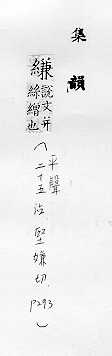 集韻
縑說文并
絲繒也
(平聲
二十五沾堅嫌切. P293)